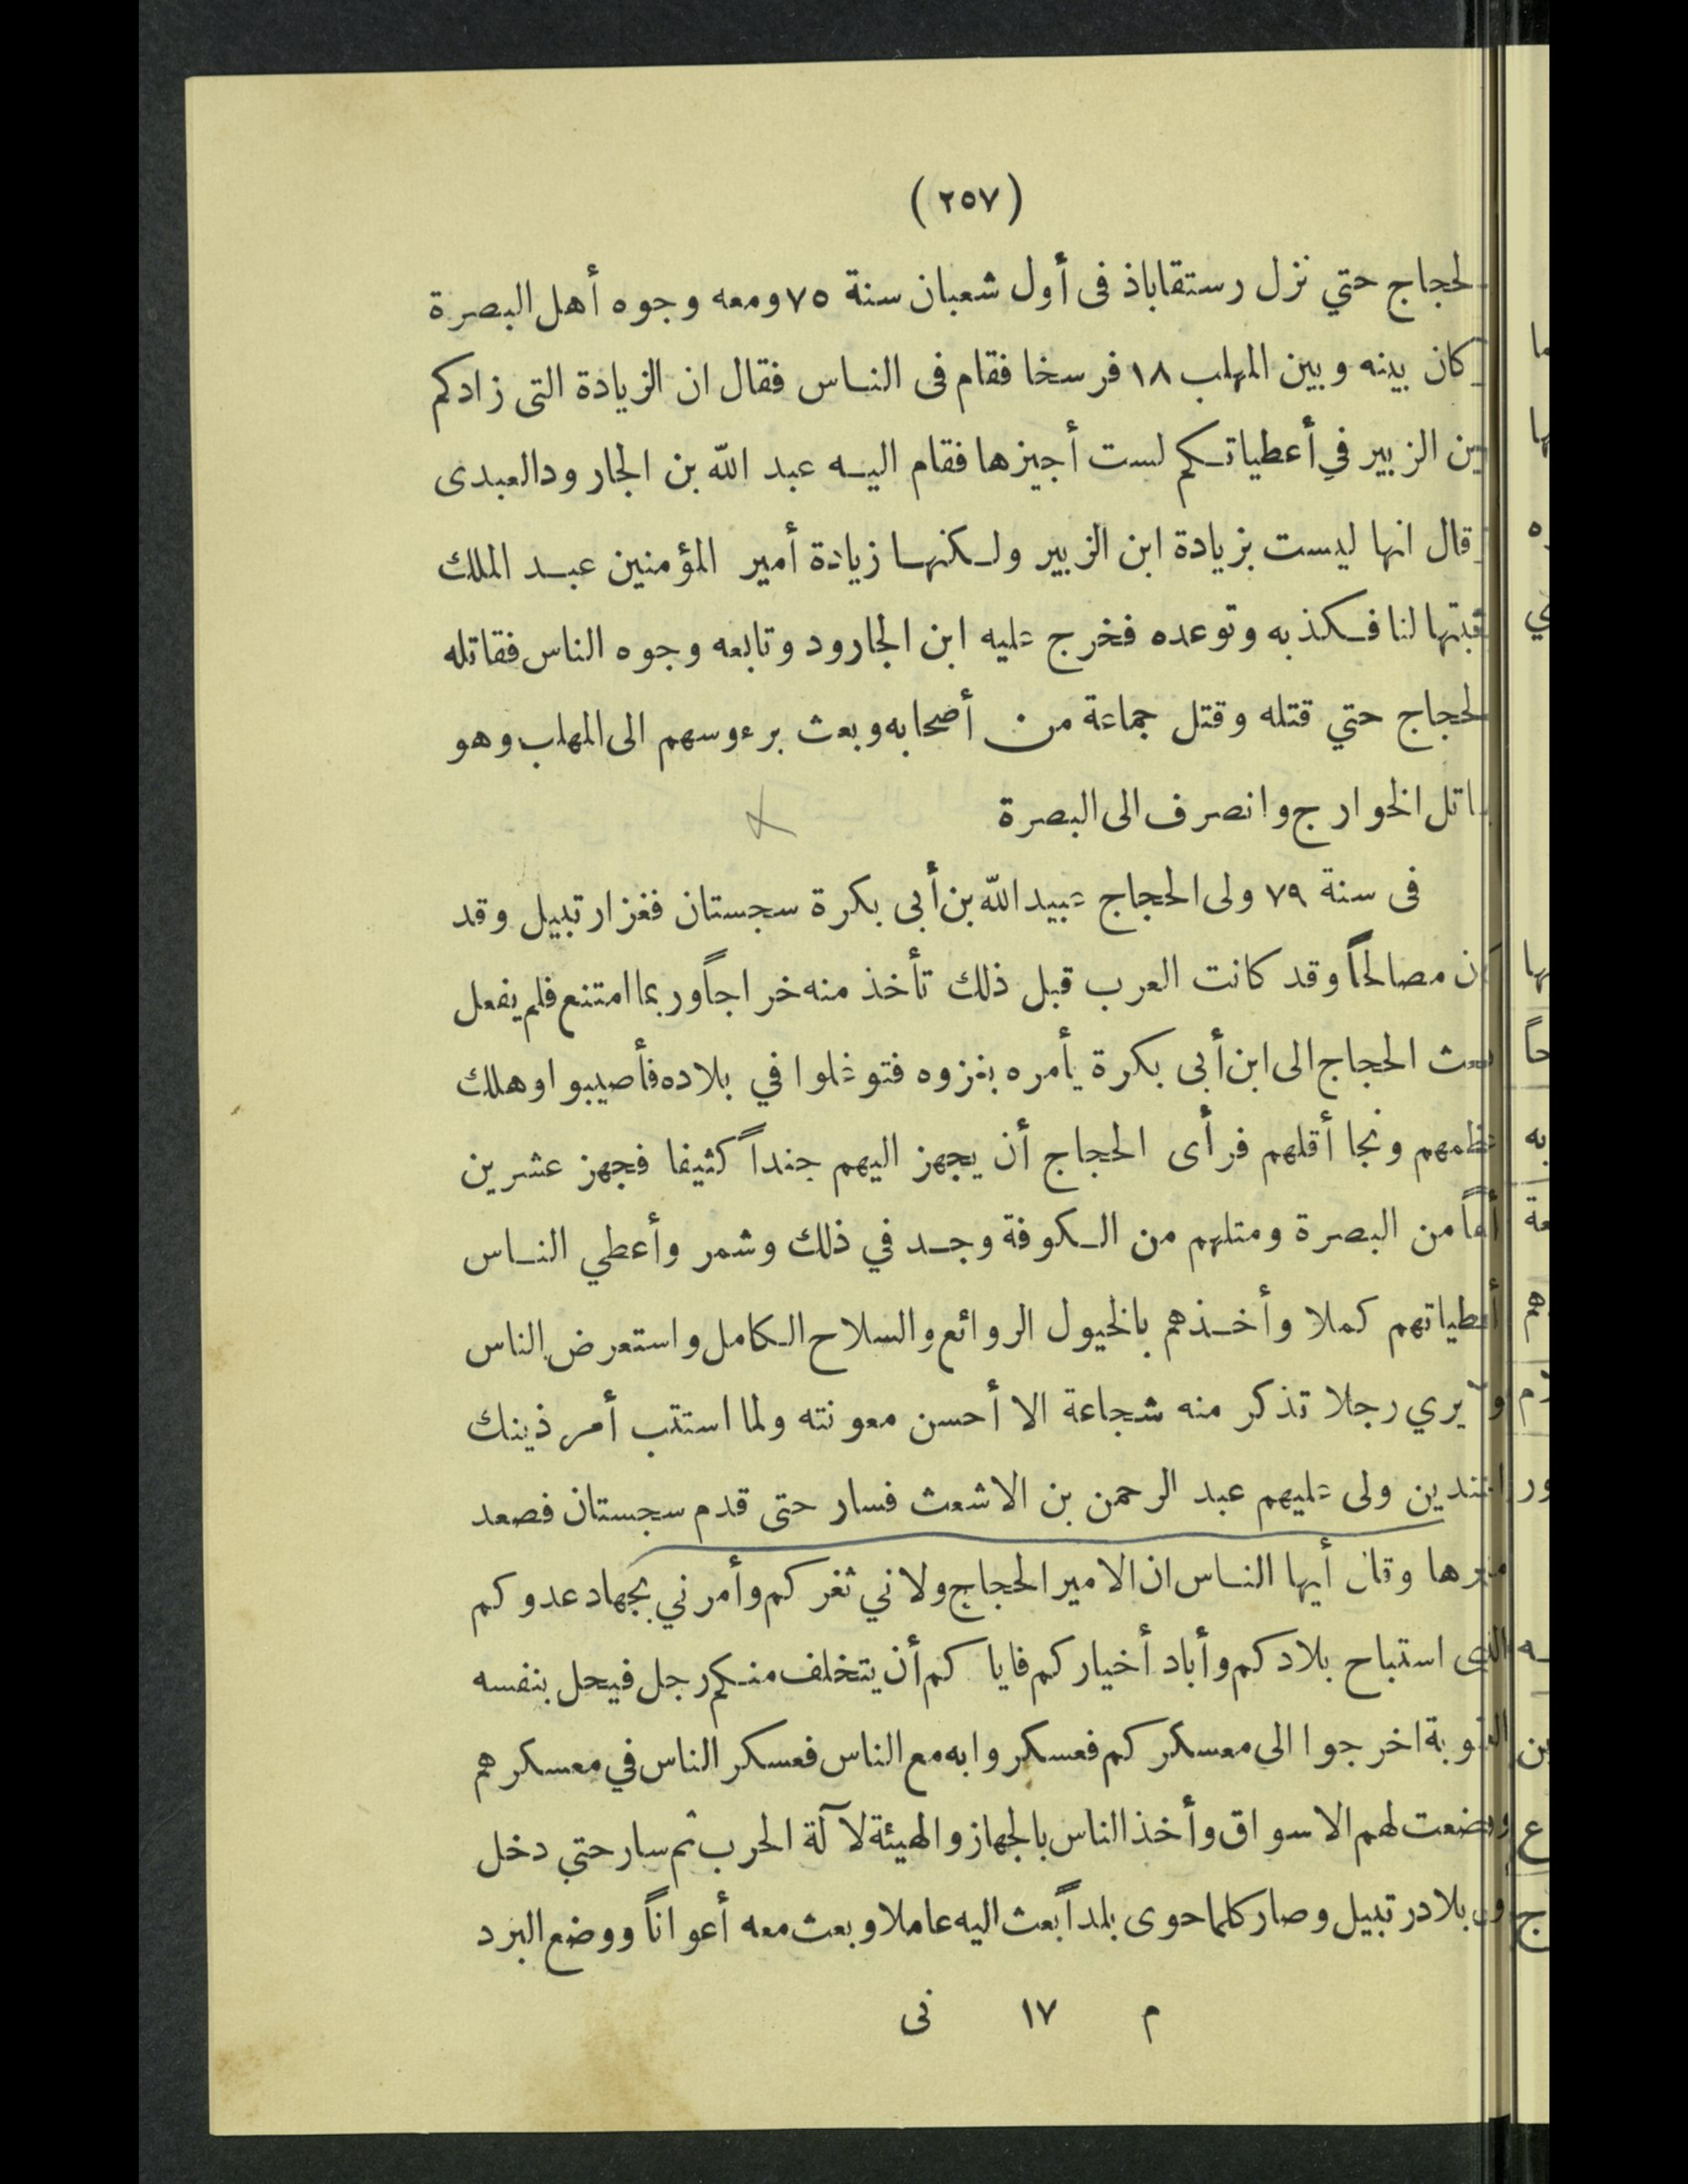 (٢٥٧)
لحجاج حتي نزل رستقاباذ فى أول شعبان سنة ٧٥ ومعه وجوه أهل البصرة
كان بينه وبين المهلب ١٨ فرسخا فقام فى الناس فقال ان الزيادة التى زادكم
الزبير في أعطياتكم لست أجيزها فقام اليه عبد الله بن الجارود العبدى
قال انها ليست بزيادة ابن الزبير ولكنها زيادة أمير المؤمنين عبد الملك
ثبتها لنا فكذبه وتوعده فخرج عليه ابن الجارود وتابعه وجوه الناس فقاتله
لحجاج حتي قتله وقتل جماعة من أصحابه وبعث برءوسهم الى المهلب وهو
اتل الخوارج وانصرف الى البصرة
فى سنة ٧٩ ولى الحجاج عبيد الله بن أبى بكرة سجستان فغزا رتبيل وقد
كان مصالحاً وقد كانت العرب قبل ذلك تأخذ منه خراجاً وربما امتنع فلم يفعل
بعث الحجاج الى ابن أبى بكرة يأمره بغزوه فتوغلوا في بلاده فأصيبوا وهلك
عظمهم ونجا أقلهم فرأى الحجاج أن يجهز اليهم جنداً كثيفا فجهز عشرين
ألفاً من البصرة ومثلهم من الكوفة وجد في ذلك وشمر وأعطي الناس
أعطياتهم كملا وأخذهم بالخيول الروائع والسلاح الكامل واستعرض الناس
ولا يري رجلا تذكر منه شجاعة الا أحسن معونته ولما استتب أمر ذينك
الجندين ولى عليهم عبد الرحمن بن الاشعث فسار حتى قدم سجستان فصعد
منبرها وقال أيها الناس ان الامير الحجاج ولاني ثغركم وأمرني بجهاد عدوكم
الذى استباح بلادكم وأباد أخياركم فاياكم أن يتخلف منكم رجل فيحل بنفسه
العقوبة اخرجوا الى معسكركم فعسكروا به مع الناس فعسكر الناس في معسكرهم
ووضعت لهم الاسواق وأخذ الناس بالجهاز والهيئة لآلة الحرب ثم سار حتي دخل
بلاد رتبيل وصار كلما حوى بلداً بعث اليه عاملا وبعث معه أعواناً ووضع البرد
م ١٧ نى